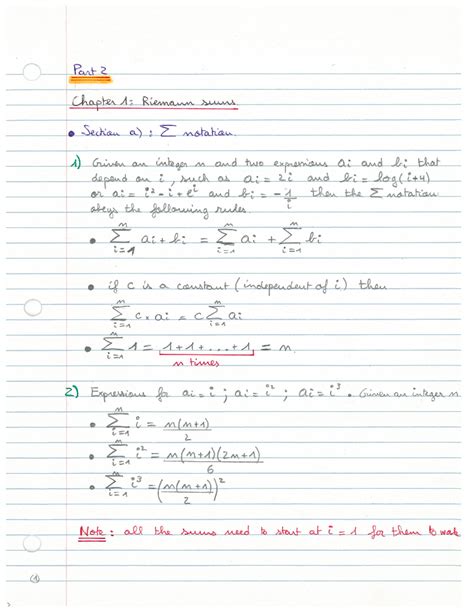 Part 2
Chapter 1: Riemann sums
• Section a) : Σ notation.
1) Given an integer n and two expressions ai and bi that
depend on i, such as ai = 2i and bi = log(i+4)
or ai = i² - i + e^i and bi = -1/i then the Σ notation
obeys the following rules.
• Σ_{i=1}^{n} ai + bi = Σ_{i=1}^{n} ai + Σ_{i=1}^{n} bi
• if c is a constant (independent of i) then
Σ_{i=1}^{n} c × ai = c Σ_{i=1}^{n} ai
• Σ_{i=1}^{n} 1 = 1+1+...+1 = n.
n times
2) Expressions for ai = i ; ai = i² ; ai = i³. Given an integer n
• Σ_{i=1}^{n} i = n(n+1)/2
• Σ_{i=1}^{n} i² = n(n+1)(2n+1)/6
• Σ_{i=1}^{n} i³ = (n(n+1)/2)²
Note : all the sums need to start at i = 1 for them to work
(1)